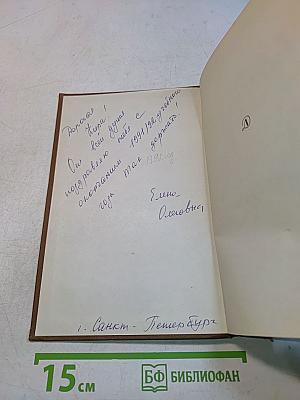 Дорогая
Кира!
От всей души
поздравляю тебя с
окончанием 1991/92 учебного
года так держать!
Елена
Олеговна
г. Санкт-Петербург
Д
15 см
БФ БИБЛИОФАН